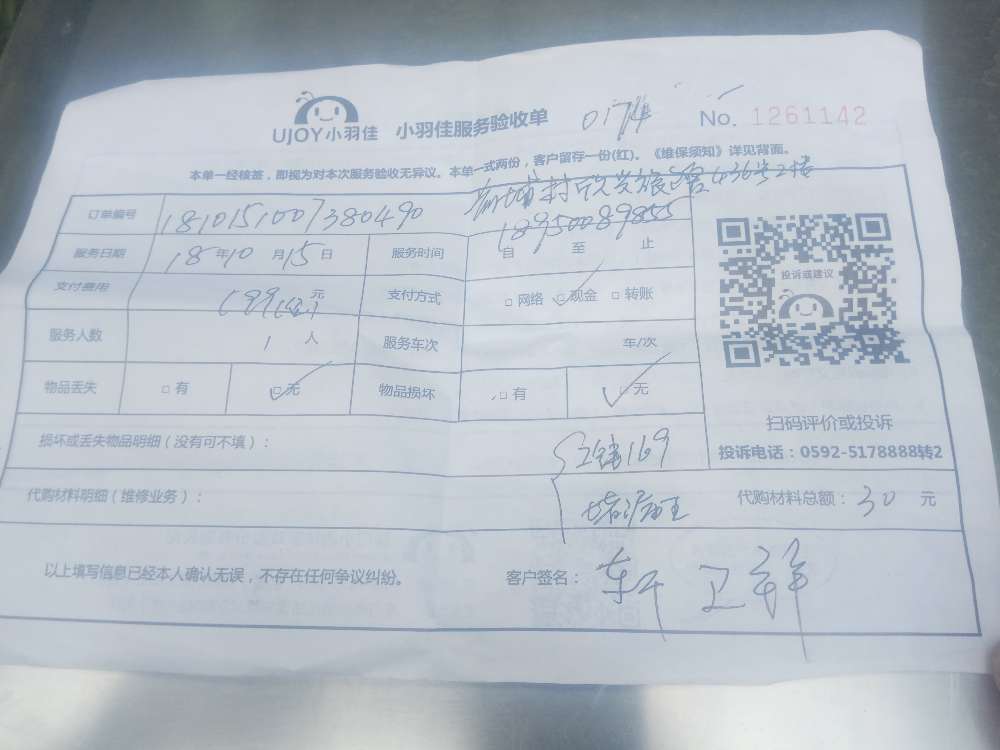 UJOY小羽佳 小羽佳服务验收单 0174 No. 1261142
本单一经核签，即视为对本次服务验收无异议。本单一式两份，客户留存一份(红)。《维保须知》详见背面。
436号2楼
订单编号 1810151007380490 18950089855
服务日期 18年10月15日 服务时间 自 至 止
支付费用 199 元 支付方式 □网络 □现金 □转账
服务人数 1 人 服务车次 车/次
物品丢失 □有 □无 物品损坏 □有 □无
投诉或建议
扫码评价或投诉
投诉电话：0592-5178888转2
损坏或丢失物品明细（没有可不填）： 169
代购材料明细（维修业务）： 堵漏王 代购材料总额：30 元
以上填写信息已经本人确认无误，不存在任何争议纠纷。 客户签名： 卫祥